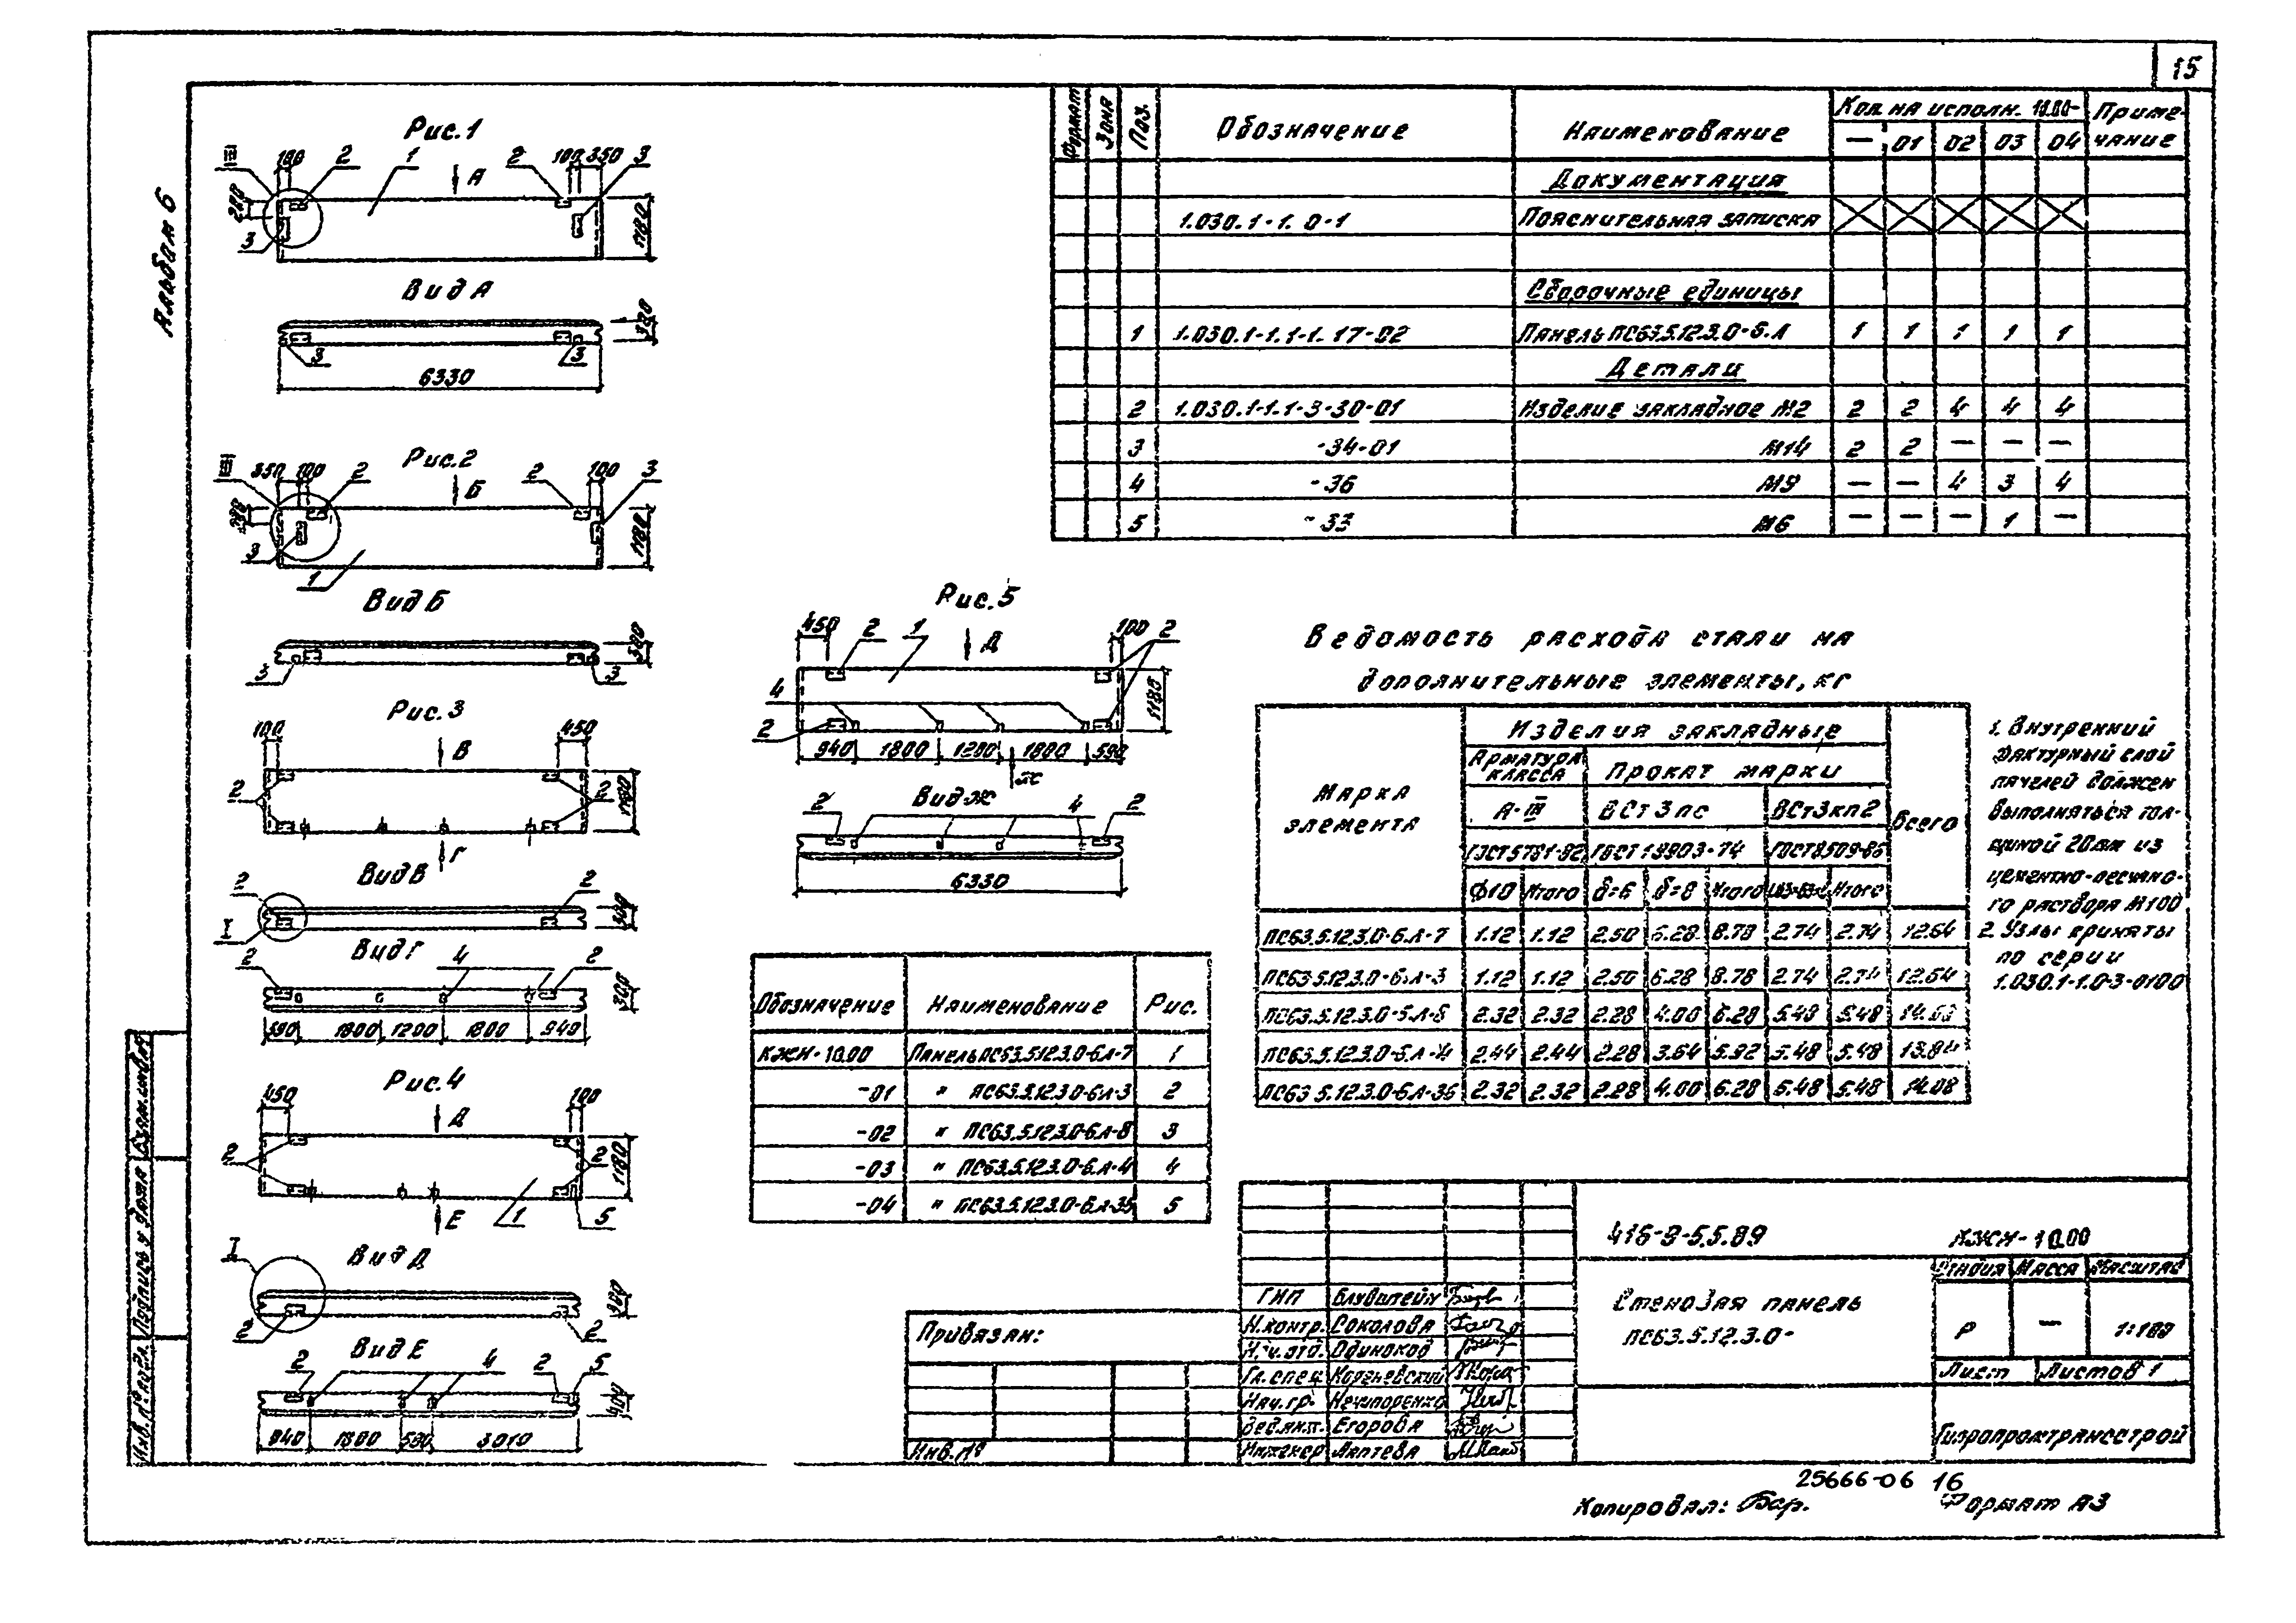 15
Альбом 6
Рис.1
III 100 2 1 А 2 100 350 3
280 3 1180
Вид А
3 3 300
6330
Рис.2
III 350 100 2 Б 2 100 3
280 3 1 1180
Вид Б
3 3 300
Рис. 3
100 В 450
2 2 1180
Г
Вид В
2 2 300
I
Вид Г
2 4 2 300
590 1800 1200 1800 940
Рис.4
450 Д 100
2 2 1180
Е 1 5
Вид Д
I 2 2 300
Вид Е
2 4 2 5
940 1800 580 3010
Рис. 5
450 2 1 Д 100 2
4 2 1180
940 1800 1200 1800 590
Ж
Вид Ж
2 4 2
6330
Формат Зона Поз. Обозначение Наименование Кол. на исполн. 10.00- Приме-
— 01 02 03 04 чание
Документация
1.030.1-1. 0-1 Пояснительная записка
Сборочные единицы
1 1.030.1-1.1-1. 17-02 Панель ПС63.5.12.3.0-6.Л 1 1 1 1 1
Детали
2 1.030.1-1.1-3-30-01 Изделие закладное М2 2 2 4 4 4
3 -34-01 М14 2 2 — — —
4 -36 М9 — — 4 3 4
5 -33 М6 — — — 1 —
Ведомость расхода стали на
дополнительные элементы, кг
Марка элемента Изделия закладные Всего
Арматура класса Прокат марки
А-III ВСт 3 пс ВСт3кп2
ГОСТ 5781-82 ГОСТ 19903-74 ГОСТ8509-86
Ф10 Итого δ=6 δ=8 Итого Итого
ПС63.5.12.3.0-6.Л-7 1.12 1.12 2.50 6.28 8.78 2.74 2.74 12.64
ПС63.5.12.3.0-6.Л-3 1.12 1.12 2.50 6.28 8.78 2.74 2.74 12.64
ПС63.5.12.3.0-6.Л-8 2.32 2.32 2.28 4.00 6.28 5.48 5.48
ПС63.5.12.3.0-6.Л-4 2.44 2.44 2.28 3.64 5.92 5.48 5.48 13.84
ПС63 5.12.3.0-6.Л-35 2.32 2.32 2.28 4.00 6.28 5.48 5.48 14.08
1. Внутренний
фактурный слой
панелей должен
выполняться тол-
щиной 20мм из
цементно-песчано-
го раствора М100
2. Узлы приняты
по серии
1.030.1-1.0-3-0100
Обозначение Наименование Рис.
КЖИ-10.00 Панель ПС63.5.12.3.0-6.Л-7 1
-01 " ПС63.5.12.3.0-6.Л-3 2
-02 " ПС63.5.12.3.0-6.Л-8 3
-03 " ПС63.5.12.3.0-6.Л-4 4
-04 " ПС63.5.12.3.0-6.Л-35 5
Привязан:
Инв.№
ГИП Блувштейн
Н.контр. Соколова
Нач.отд. Одиноков
Гл.спец. Корчневский
Нач.гр. Нечипоренко
Вед.инж. Егорова
Инженер Лаптева
416-9-55.89 КЖИ-10.00
Стеновая панель
ПС63.5.12.3.0-
Стадия Масса Масштаб
Р — 1:100
Лист Листов 1
Гипропромтрансстрой
Инв.№ подл. Подпись и дата Взам.инв.№
25666-06 16
Копировал: Бар. Формат А3